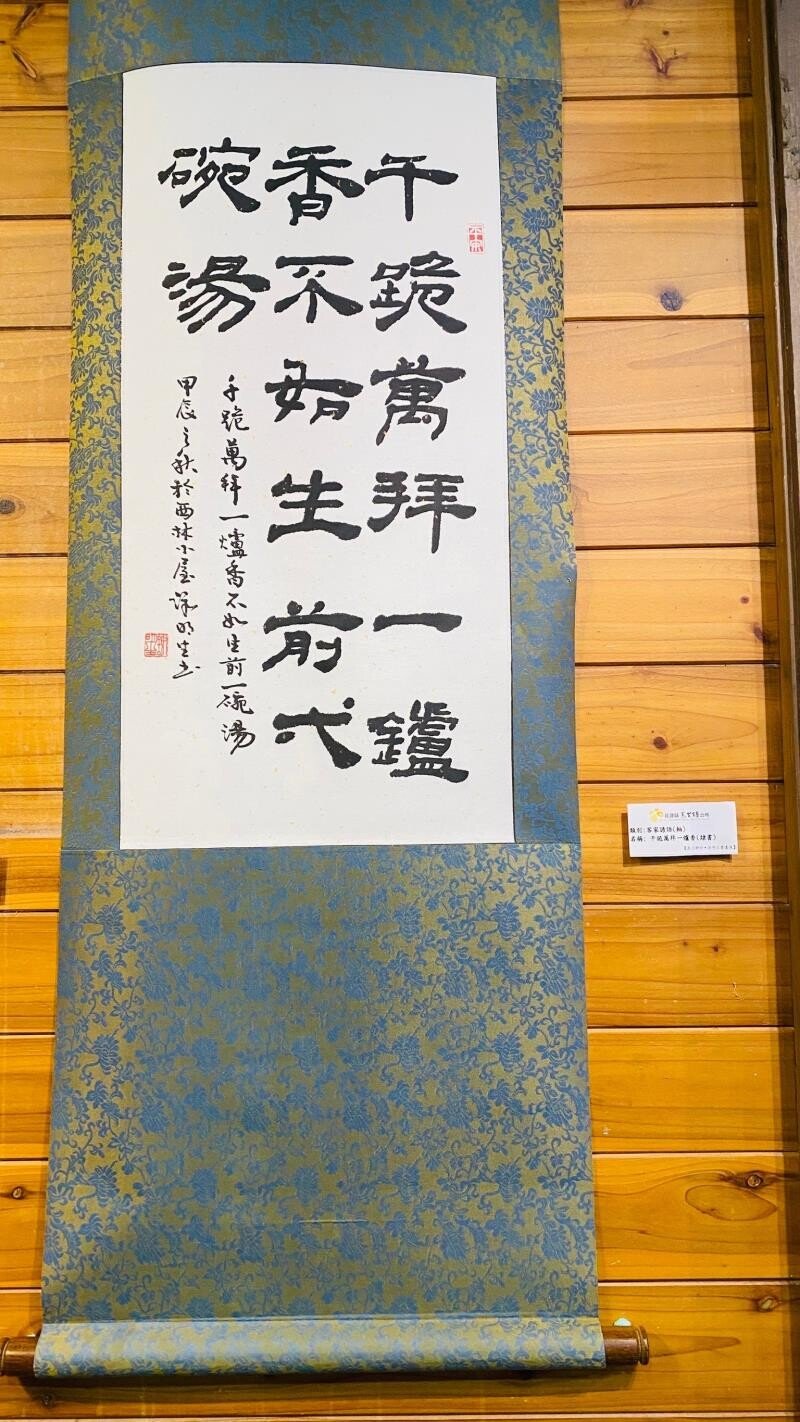 千跪萬拜一鑪
香不如生前弌
碗湯
千跪萬拜一爐香不如生前一碗湯
甲辰之秋於西林小屋 明生书
類別:客家諺語(軸)
名稱: 千跪萬拜一爐香(隸書)